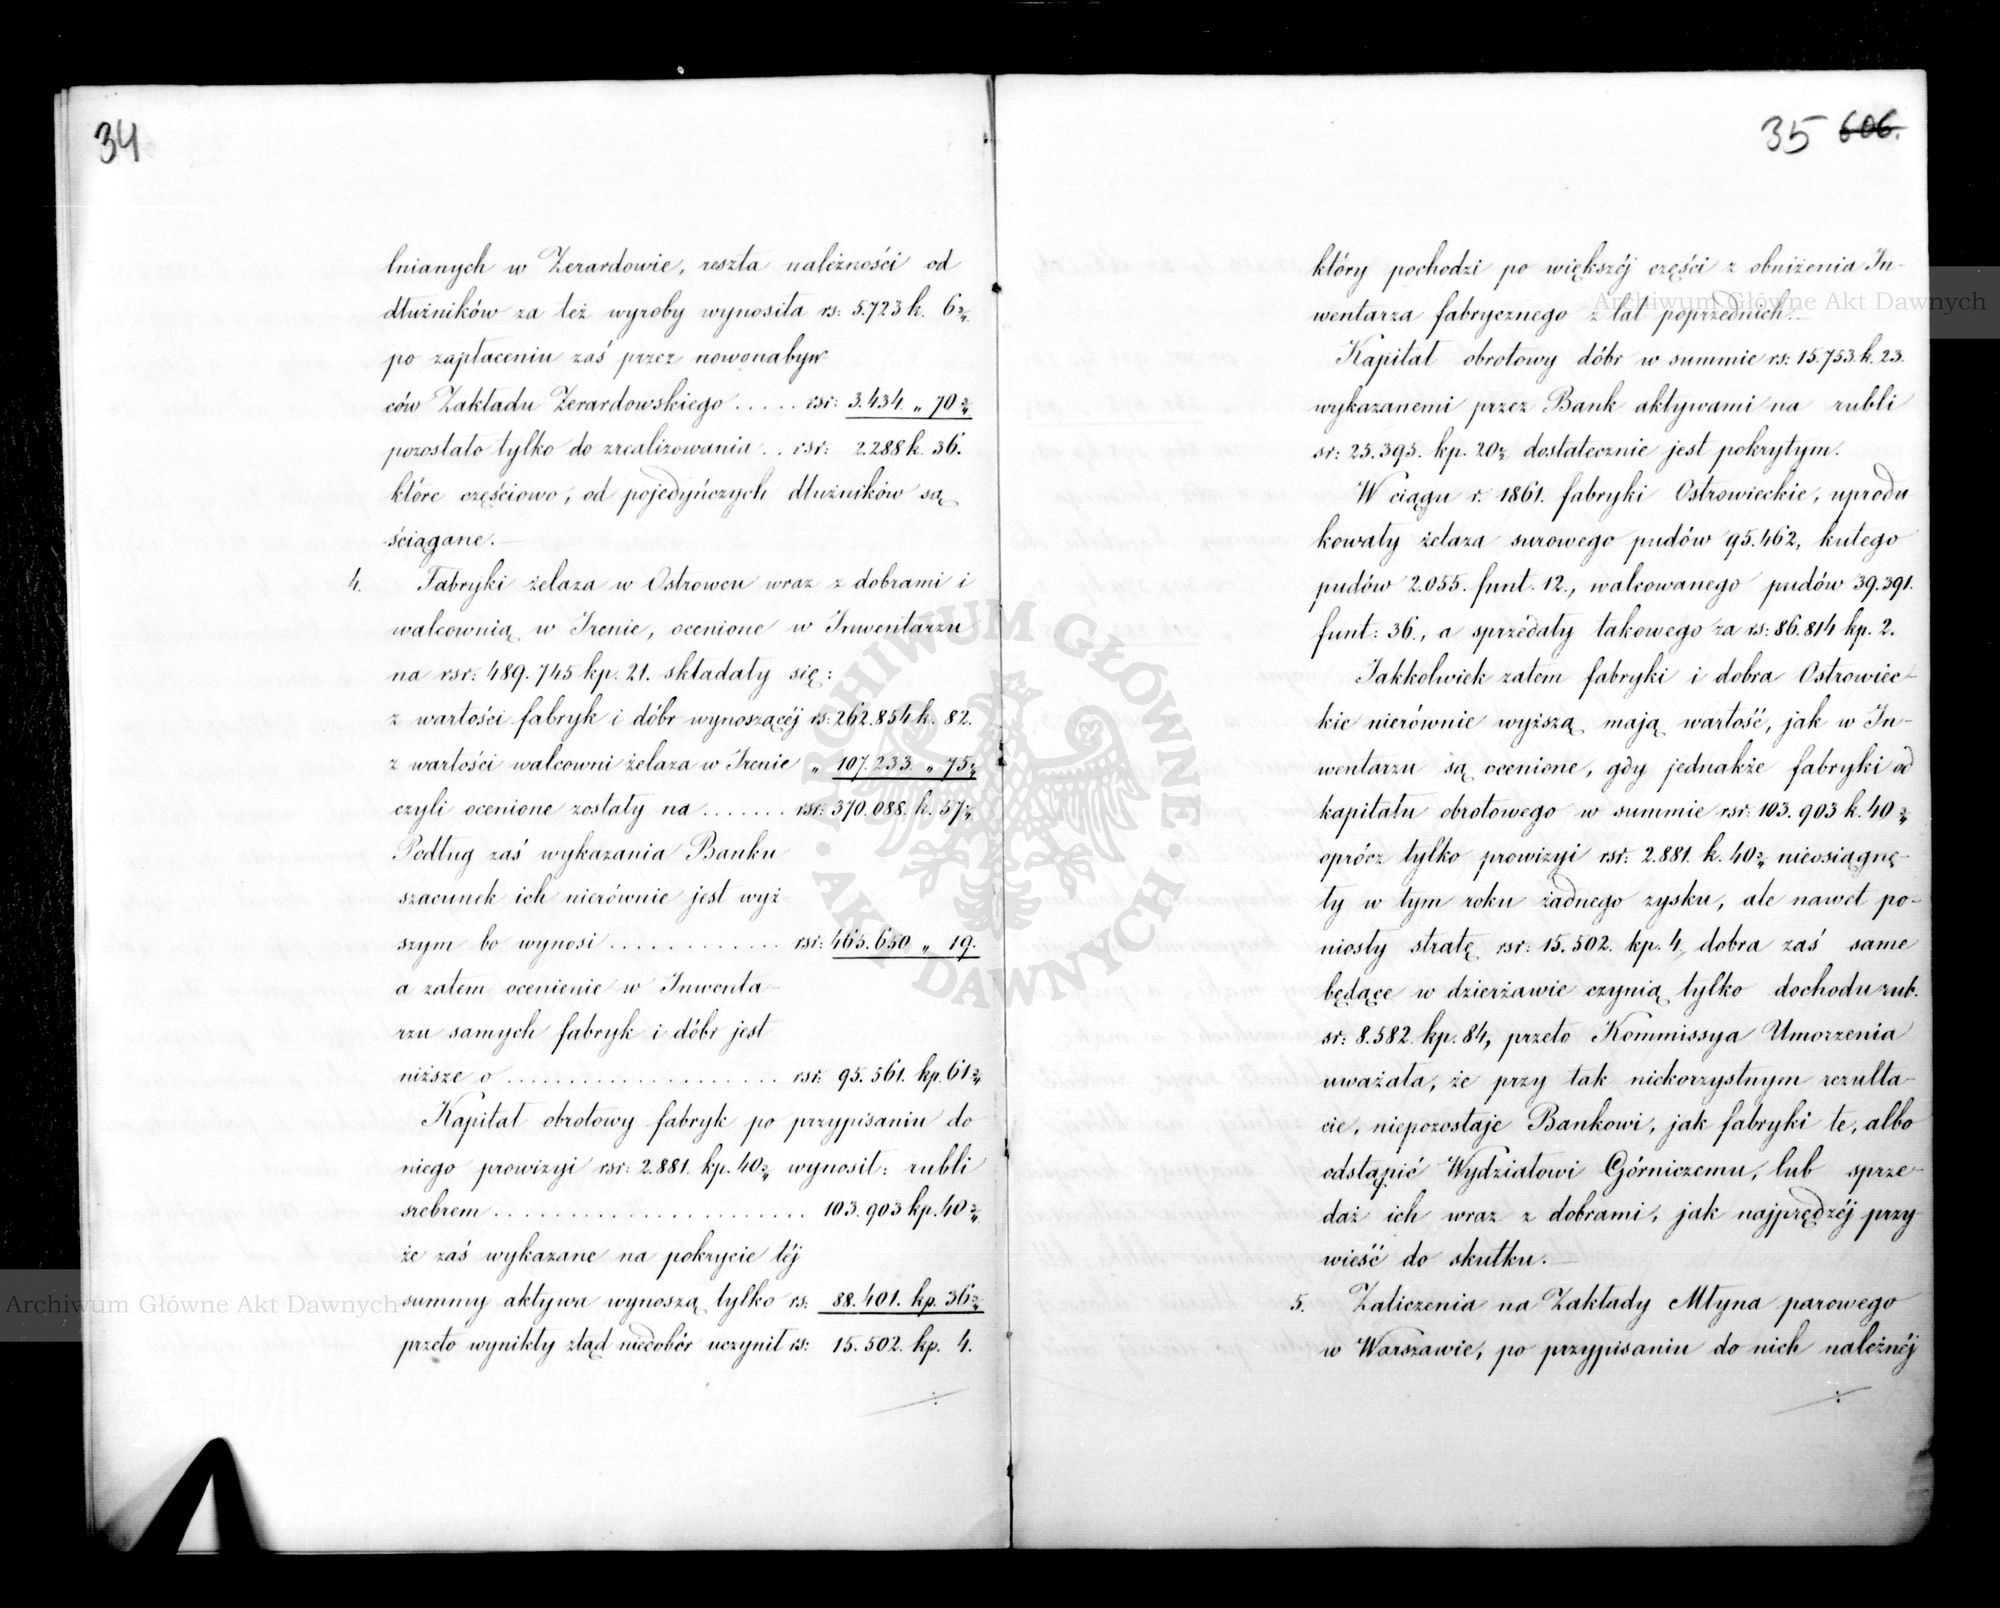 34
lnianych w Żerardowie, reszta należności od
dłużników za też wyroby wynosiła rs: 5.723 k. 6 2/4.
po zapłaceniu zaś przez nowonabyw
ców Zakładu Żerardowskiego . . . . . rsr: 3.434 „ 70 2/4
pozostało tylko do zrealizowania . . rsr: 2.288 k. 36.
które częściowo, od pojedyńczych dłużników są
ściągane. —
4. Fabryki żelaza w Ostrowcu wraz z dobrami i
walcownią w Irenie, ocenione w Inwentarzu
na rsr: 489.745 kp. 21. składały się:
z wartości fabryk i dóbr wynoszącéj rs: 262.854 k. 82.
z wartości walcowni żelaza w Irenie „ 107.233 „ 75 2/4
czyli ocenione zostały na . . . . . . . rsr: 370.088. k. 57 2/4
Podług zaś wykazania Banku
szacunek ich nierównie jest wyż-
szym bo wynosi . . . . . . . . . . . . . rsr: 465.650 „ 19.
a zatem ocenienie w Inwenta-
rzu samych fabryk i dóbr jest
niższe o . . . . . . . . . . . . . . . . . . . . . rsr: 95.561. kp. 61 2/4
Kapitał obrotowy fabryk po przypisaniu do
niego prowizyi rsr: 2.881. kp. 40 2/4 wynosił: rubli
srebrem . . . . . . . . . . . . . . . . . . . . . . . 103.903 kp. 40 2/4
że zaś wykazane na pokrycie téj
summy aktywa wynoszą tylko rs: 88.401. kp. 36 2/4
przeto wynikły ztąd niedobór uczynił rs: 15.502. kp. 4.
35 606.
który pochodzi po większéj części z obniżenia In-
wentarza fabrycznego z lat poprzednich. —
Kapitał obrotowy dóbr w summie rs: 15.753. k. 23.
wykazanemi przez Bank aktywami na rubli
sr: 25.395. kp. 20 2/4 dostatecznie jest pokrytym.
W ciągu r. 1861. fabryki Ostrowieckie, uprodu
kowały żelaza surowego pudów 95.462, kutego
pudów 2.055. funt. 12., walcowanego pudów 39.391.
funt: 36., a sprzedały takowego za rs: 86.814 kp. 2.
Jakkolwiek zatem fabryki i dobra Ostrowiec-
kie nierównie wyższą mają wartość, jak w In-
wentarzu są ocenione, gdy jednakże fabryki od
kapitału obrotowego w summie rsr: 103.903 k. 40 2/4
oprócz tylko prowizyi rsr: 2.881. k. 40 2/4 nieosiągnę-
ły w tym roku żadnego zysku, ale nawet po-
niosły stratę rsr: 15.502. kp. 4, dobra zaś same
będące w dzierżawie czynią tylko dochodu rub.
sr: 8.582. kp. 84, przeto Kommissya Umorzenia
uważała, że przy tak niekorzystnym rezulta-
cie, niepozostaje Bankowi, jak fabryki te, albo
odstąpić Wydziałowi Górniczemu, lub sprze-
daż ich wraz z dobrami, jak najprędzéj przy-
wieść do skutku. —
5. Zaliczenia na Zakłady Młyna parowego
w Warszawie, po przypisaniu do nich należnéj
Archiwum Główne Akt Dawnych
Archiwum Główne Akt Dawnych
ARCHIWUM GŁÓWNE
AKT DAWNYCH